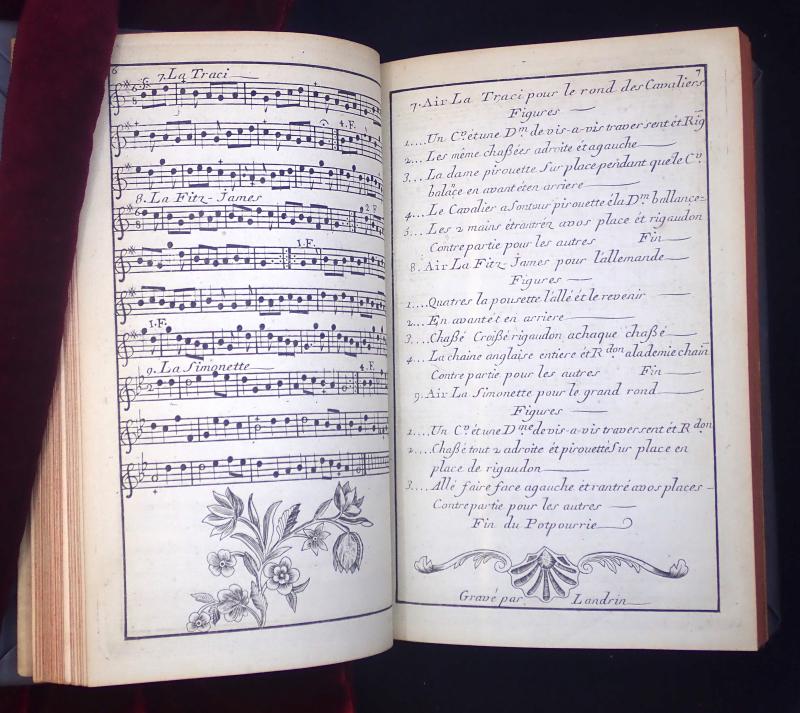 6
7. La Traci
4. F.
8. La Fitz-James
2 F.
1. F.
1. F.
9. La Simonette
4. F.
7
7. Air La Traci pour le rond des Cavaliers
Figures
1.... Un Cr. ét une Dm. de vis-a-vis traversent ét Rig
2... Les même chaßées adroite ét agauche
3... La dame pirouette Sur place pendant que le Cr.
balãce en avant ét en arriere
4... Le Cavalier a Son tour pirouette é la Dm. ballance
5... Les 2 mains ét rantréz a vos place ét rigaudon
Contre partie pour les autres Fin
8. Air La Fitz-James pour l'allemande
Figures
1....Quatres la pousette l'allé ét le revenir
2... En avant ét en arriere
3... Chaßé Croißé rigaudon achaque chaßé
4... La chaine anglaise entiere ét Rdon a la demie chain
Contre partie pour les autres Fin
9. Air La Simonette pour le grand rond
Figures
1.... Un Cr. ét une Dme de vis-a-vis traversent ét Rdon
2.... Chaßé tout 2 adroite ét pirouetté Sur place en
place de rigaudon
3... Allé faire face agauche ét rantré a vos places
Contre partie pour les autres
Fin du Potpourrie
Gravé par Landrin